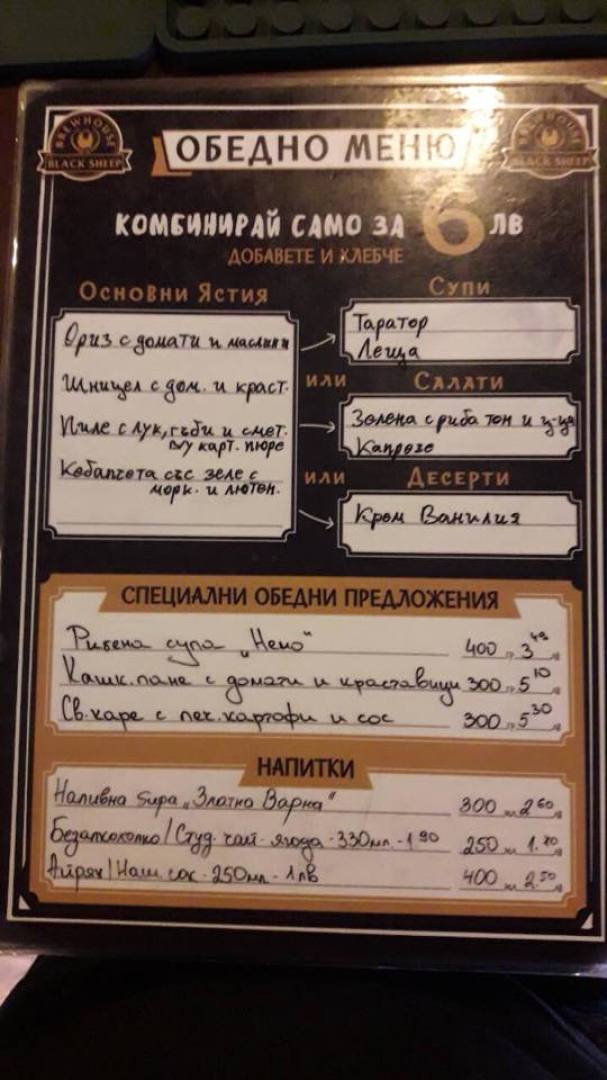 BREWHOUSE
BLACK SHEEP
ОБЕДНО МЕНЮ
BREWHOUSE
BLACK SHEEP
КОМБИНИРАЙ САМО ЗА 6 ЛВ
ДОБАВЕТЕ И ХЛЕБЧЕ
ОСНОВНИ ЯСТИЯ
Ориз с домати и маслини
Шницел с дом. и краст.
Пиле с лук, гъби и смет.
в/у карт. пюре
Кебапчета със зеле с
морк. и лютен.
СУПИ
Таратор
Леща
ИЛИ
САЛАТИ
Зелена с риба тон и ц-ца
Капрезе
ИЛИ
ДЕСЕРТИ
Крем Ванилия
СПЕЦИАЛНИ ОБЕДНИ ПРЕДЛОЖЕНИЯ
Рибена супа "Немо" 400 гр. 3 49 лв
Кашк. пане с домати и краставици 300 гр. 5 10 лв
Св. каре с печ. картофи и сос 300 гр. 5 30 лв
НАПИТКИ
Наливна бира "Златна Варна" 300 мл 2 60 лв
Безалкохолно / Студ. чай - ягода - 330мл. - 1 90 250 мл
Айрян / Наш. сок - 250мл - 1лв 400 мл 2.50 лв